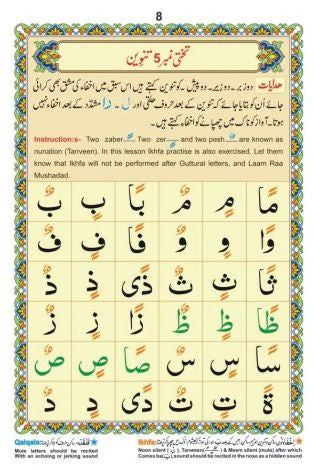 8
تختی نمبر 5 تنوین
ہدایات دو زبر۔ دو زیر۔ دو پیش۔ کو تنوین کہتے ہیں اس سبق میں اخفاء کی مشق بھی کرائی
جائے اُن کو بتایا جائے کہ تنوین کے بعد حروف حلقی اور ل ۔ را مشدّد کے بعد اخفاء نہیں
ہوتا۔ آواز کو ناک میں چھپانے کو اخفاء کہتے ہیں۔
Instruction:s- Two zaber Two zer and two pesh are known as
nunation (Tanveen). In this lesson Ikhfa practise is also exercised. Let them
know that Ikhfa will not be performed after Guttural letters, and Laam Raa
Mushadad.
مًا مٍ مٌ بًا بٍ بٌ
وًا وٍ وٌ فًا فٍ فٌ
ثًا ثٍ ثٌ ذًی ذٍ ذٌ
ظًا ظٍ ظٌ زًا زٍ زٌ
سًا سٍ سٌ صًا صٍ صٌ
ةً تٍ تٌ دًی دٍ دٌ
Qalqala:
Mute letters should be recited
With an echaing or jerking sound
Ikhfa:
Noon silent (نْ), Tanween & Meem silent (mute) after which
Comes ba(ب), sound should be recited in the nose as a hidden sound